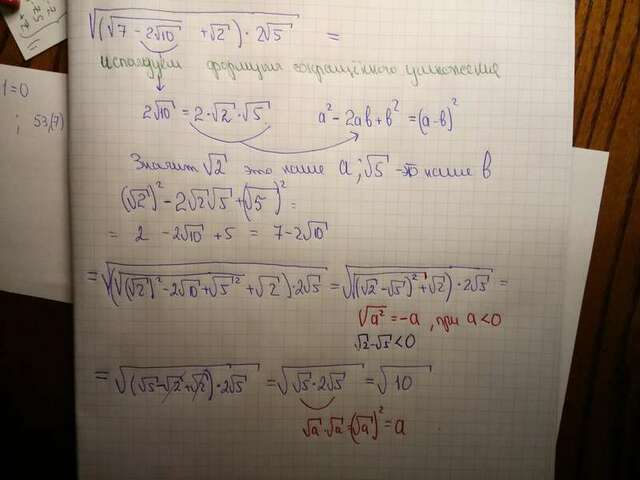 √((√7 - 2√10 + √2) · 2√5) =
используем формулу сокращённого умножения
2√10 = 2·√2·√5 a² - 2ab + b² = (a-b)²
Значит √2 это наше a; √5 - это наше b
(√2)² - 2√2√5 + (√5)² =
= 2 - 2√10 + 5 = 7 - 2√10
= √((√((√2)² - 2√10 + √5²) + √2) · 2√5) = √((√((√2 - √5)²) + √2) · 2√5) =
√a² = -a, при a<0
√2 - √5 < 0
= √((√5 - √2 + √2) · 2√5) = √(√5 · 2√5) = √10
√a · √a = (√a)² = a
1=0
; 53(7)